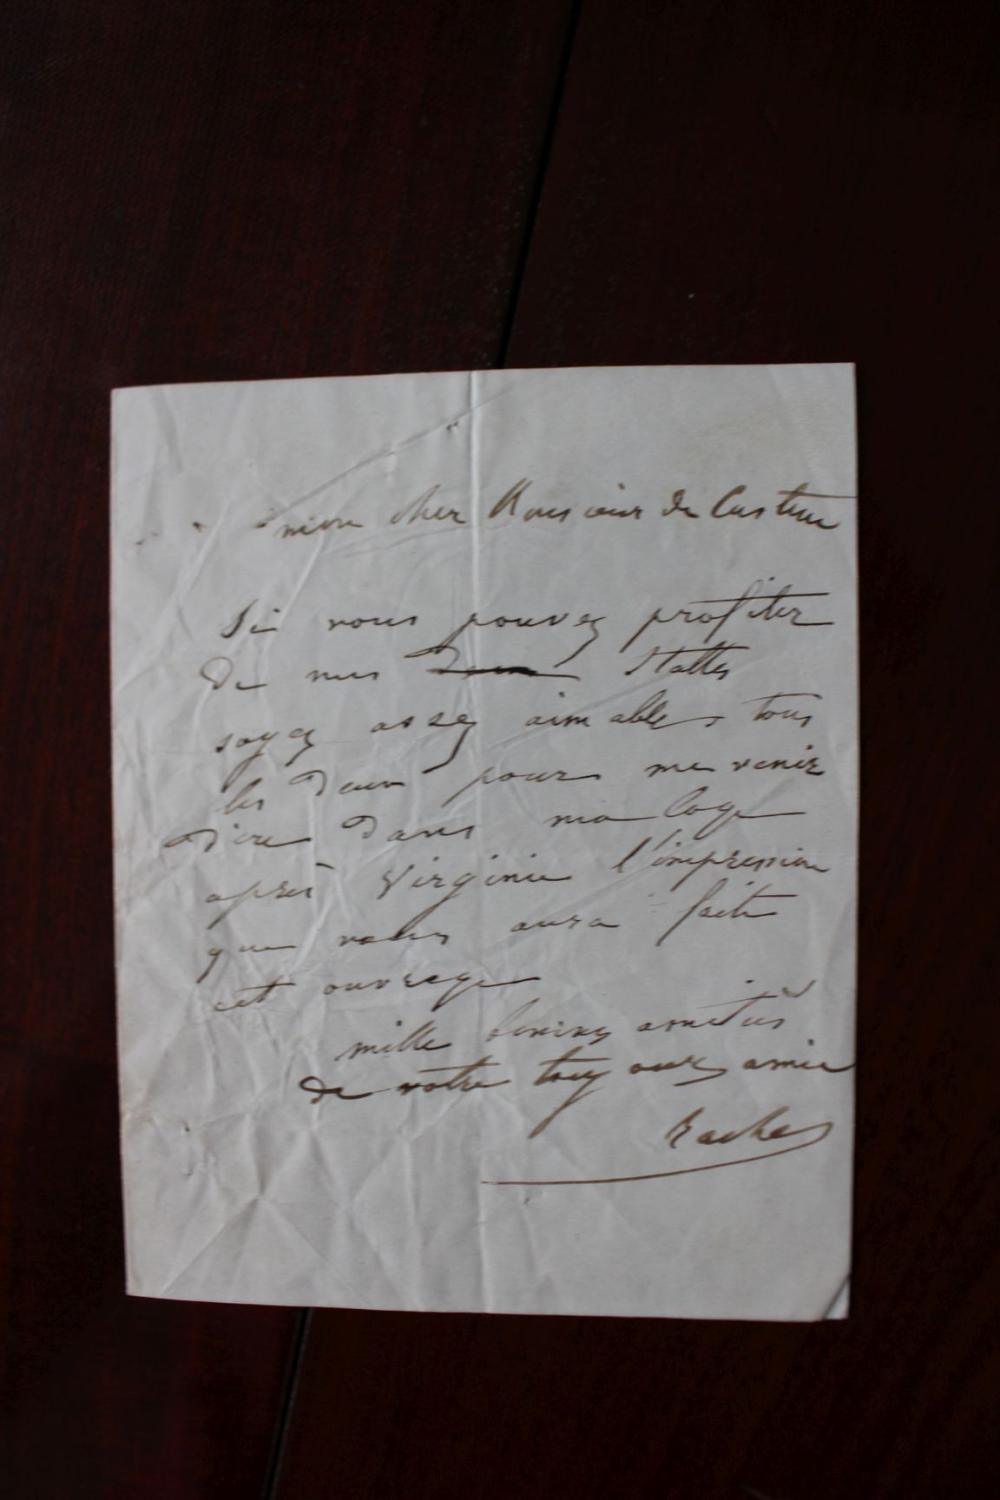 mon cher Monsieur de Custine
Si vous pouvez profiter
de mes deux stalles
soyez assez aimables tous
les deux pour me venir
dire dans ma loge
après Virginie l'impression
que vous aura faite
cet ouvrage
mille bonnes amitiés
de votre toujours amie
Rachel